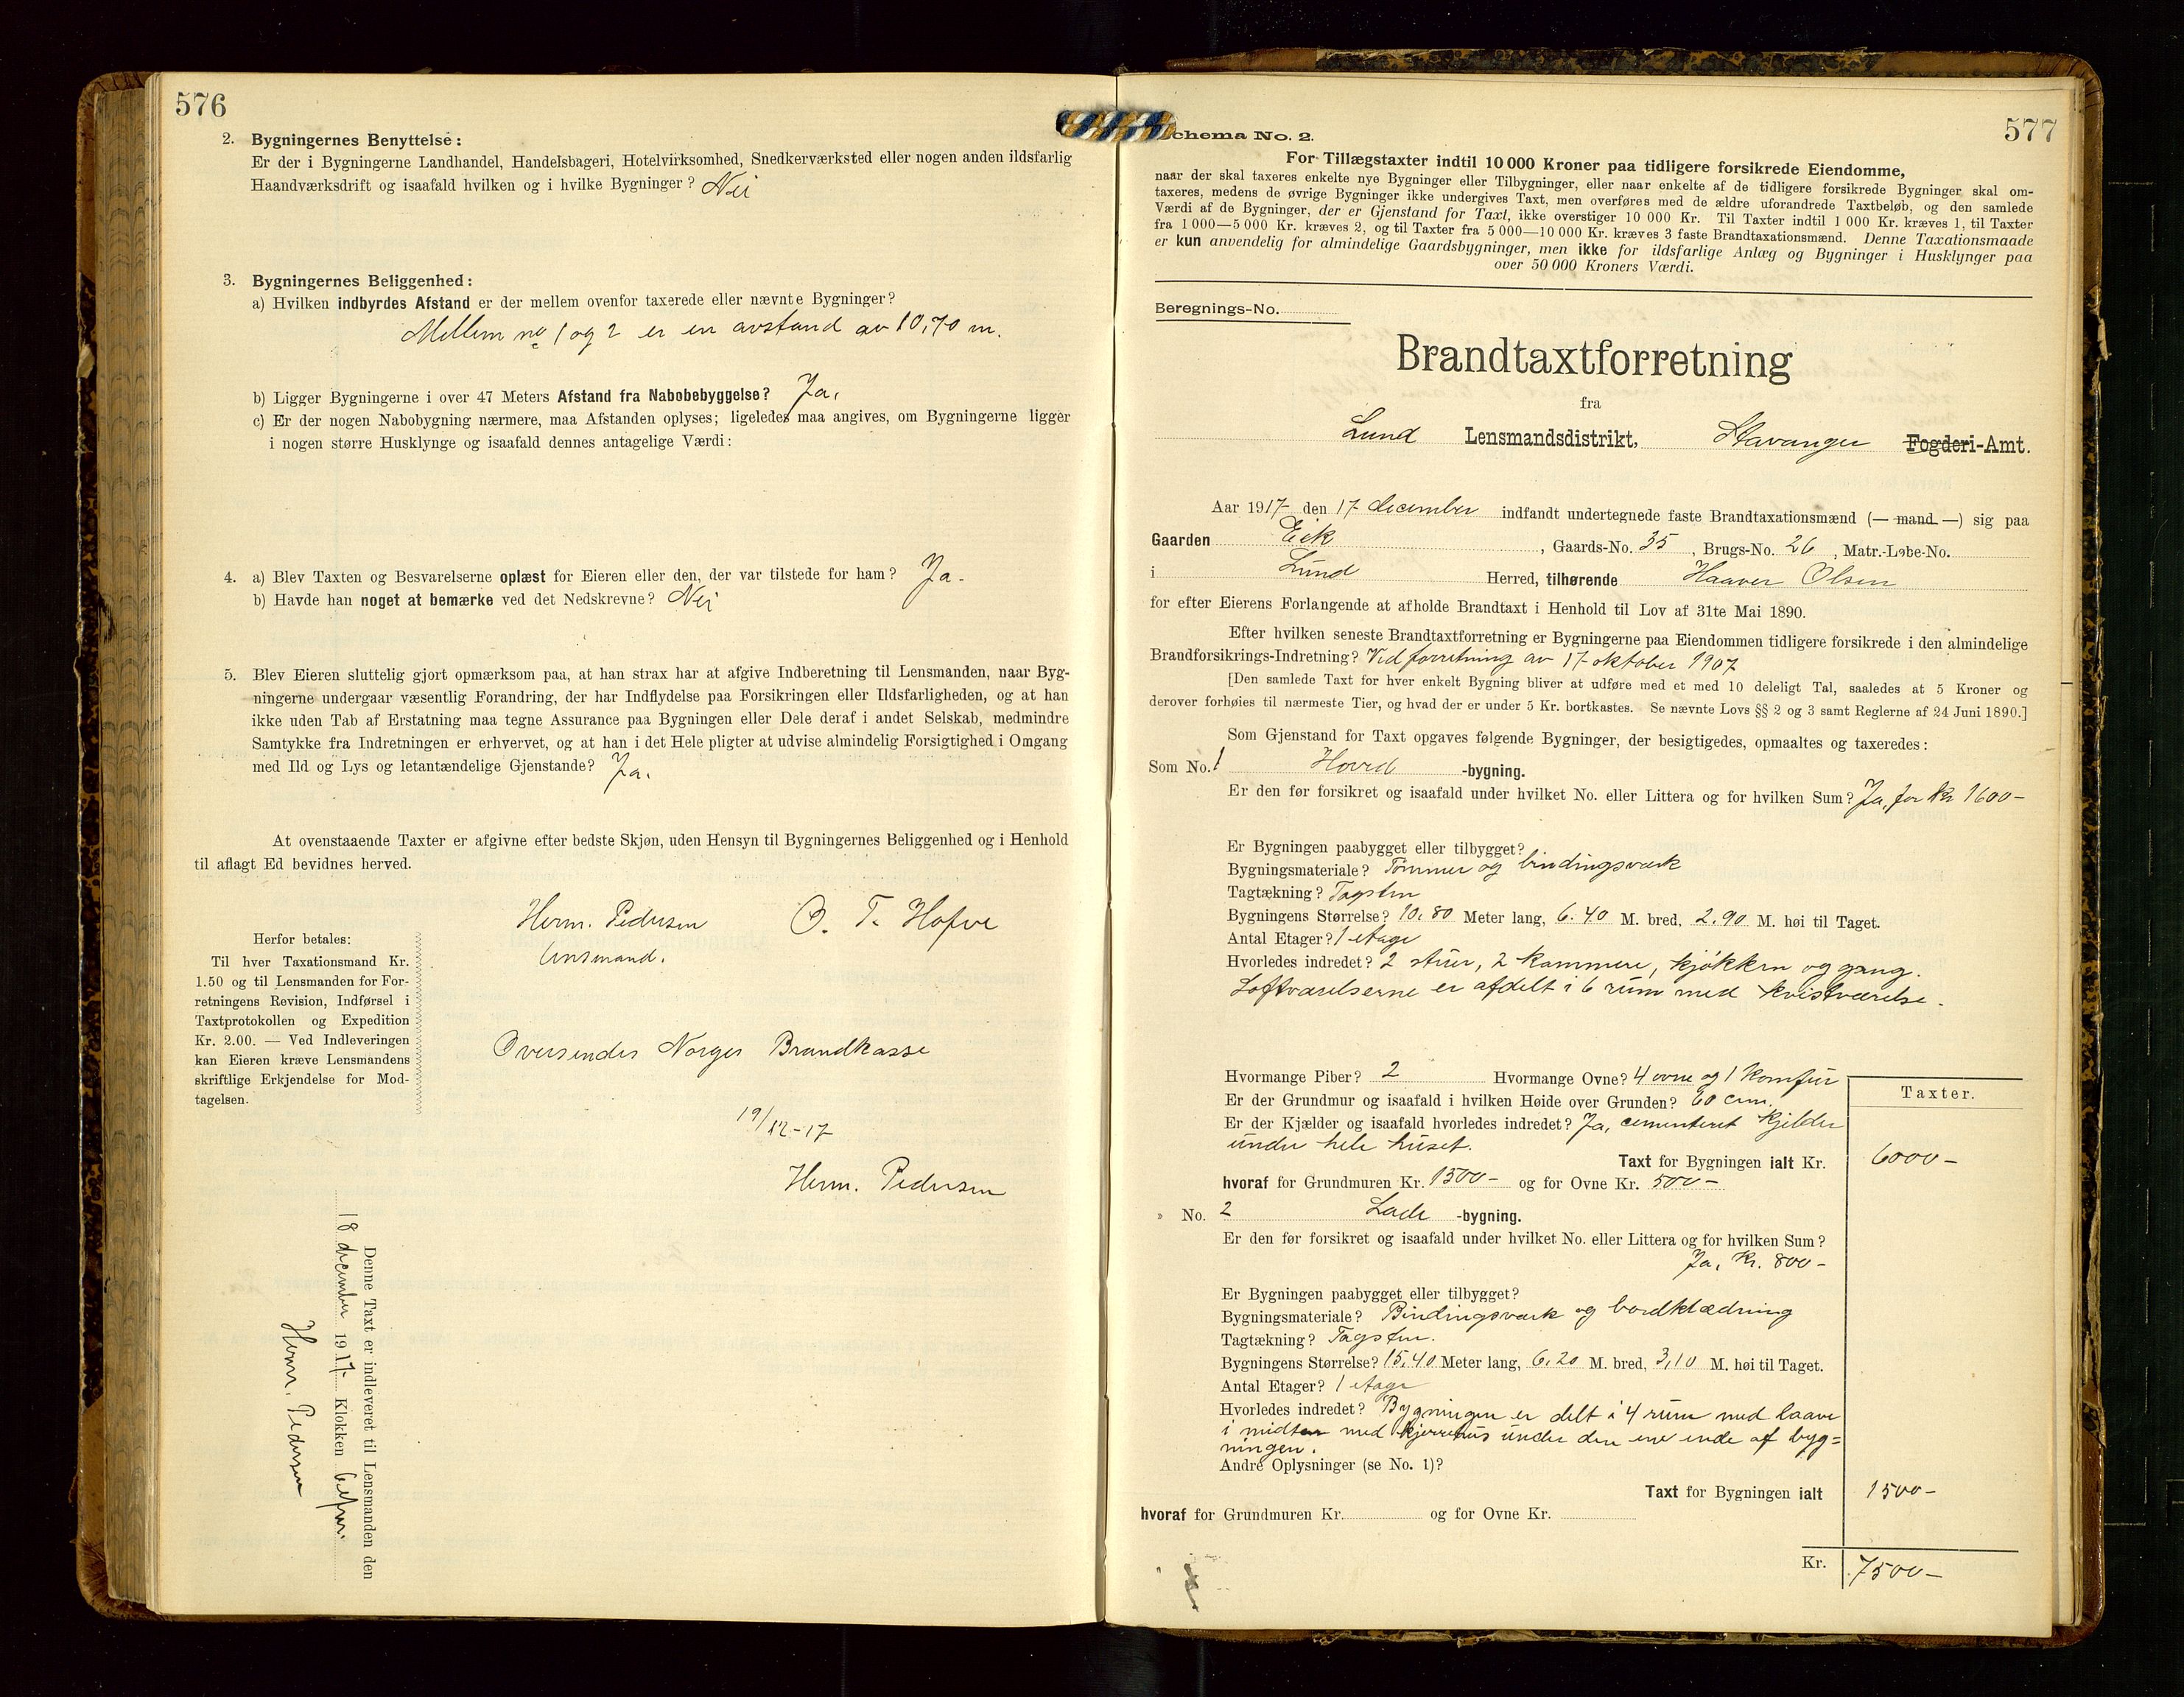 576
2. Bygningernes Benyttelse:
Er der i Bygningerne Landhandel, Handelsbageri, Hotelvirksomhed, Snedkerværksted eller nogen anden ildsfarlig
Haandværksdrift og isaafald hvilken og i hvilke Bygninger? Nei
3. Bygningernes Beliggenhed:
a) Hvilken indbyrdes Afstand er der mellem ovenfor taxerede eller nævnte Bygninger?
Mellem no 1 og 2 er en avstand av 10,70 m.
b) Ligger Bygningerne i over 47 Meters Afstand fra Nabobebyggelse? Ja.
c) Er der nogen Nabobygning nærmere, maa Afstanden oplyses; ligeledes maa angives, om Bygningerne ligger
i nogen større Husklynge og isaafald dennes antagelige Værdi:
4. a) Blev Taxten og Besvarelserne oplæst for Eieren eller den, der var tilstede for ham? Ja.
b) Havde han noget at bemærke ved det Nedskrevne? Nei
5. Blev Eieren sluttelig gjort opmærksom paa, at han strax har at afgive Indberetning til Lensmanden, naar Byg-
ningerne undergaar væsentlig Forandring, der har Indflydelse paa Forsikringen eller Ildsfarligheden, og at han
ikke uden Tab af Erstatning maa tegne Assurance paa Bygningen eller Dele deraf i andet Selskab, medmindre
Samtykke fra Indretningen er erhvervet, og at han i det Hele pligter at udvise almindelig Forsigtighed i Omgang
med Ild og Lys og letantændelige Gjenstande? Ja.
At ovenstaaende Taxter er afgivne efter bedste Skjøn, uden Hensyn til Bygningernes Beliggenhed og i Henhold
til aflagt Ed bevidnes herved.
Herm. Pedersen O. T. Hofve
lensmand.
Herfor betales:
Til hver Taxationsmand Kr.
1.50 og til Lensmanden for For-
retningens Revision, Indførsel i
Taxtprotokollen og Expedition
Kr. 2.00. — Ved Indleveringen
kan Eieren kræve Lensmandens
skriftlige Erkjendelse for Mod-
tagelsen.
Oversendes Norges Brandkasse
19/12-17
Herm. Pedersen
Denne Taxt er indleveret til Lensmanden den
18 december 1917 Klokken 6 efm.
Herm. Pedersen
577
chema No. 2.
For Tillægstaxter indtil 10 000 Kroner paa tidligere forsikrede Eiendomme,
naar der skal taxeres enkelte nye Bygninger eller Tilbygninger, eller naar enkelte af de tidligere forsikrede Bygninger skal om-
taxeres, medens de øvrige Bygninger ikke undergives Taxt, men overføres med de ældre uforandrede Taxtbeløb, og den samlede
Værdi af de Bygninger, der er Gjenstand for Taxt, ikke overstiger 10 000 Kr. Til Taxter indtil 1 000 Kr. kræves 1, til Taxter
fra 1 000—5 000 Kr. kræves 2, og til Taxter fra 5 000—10 000 Kr. kræves 3 faste Brandtaxationsmænd. Denne Taxationsmaade
er kun anvendelig for almindelige Gaardsbygninger, men ikke for ildsfarlige Anlæg og Bygninger i Husklynger paa
over 50 000 Kroners Værdi.
Beregnings-No.
Brandtaxtforretning
fra
Lund Lensmandsdistrikt, Stavanger Fogderi-Amt.
Aar 1917 den 17 december indfandt undertegnede faste Brandtaxationsmænd (— mand —) sig paa
Gaarden Eik, Gaards-No. 35, Brugs-No. 26, Matr.-Løbe-No.
i Lund Herred, tilhørende Haaver Olsen
for efter Eierens Forlangende at afholde Brandtaxt i Henhold til Lov af 31te Mai 1890.
Efter hvilken seneste Brandtaxtforretning er Bygningerne paa Eiendommen tidligere forsikrede i den almindelige
Brandforsikrings-Indretning? Ved forretning av 17 oktober 1907
[Den samlede Taxt for hver enkelt Bygning bliver at udføre med et med 10 deleligt Tal, saaledes at 5 Kroner og
derover forhøies til nærmeste Tier, og hvad der er under 5 Kr. bortkastes. Se nævnte Lovs §§ 2 og 3 samt Reglerne af 24 Juni 1890.]
Som Gjenstand for Taxt opgaves følgende Bygninger, der besigtigedes, opmaaltes og taxeredes:
Som No. 1 Hoved -bygning.
Er den før forsikret og isaafald under hvilket No. eller Littera og for hvilken Sum? Ja, for kr 1600-
Er Bygningen paabygget eller tilbygget?
Bygningsmateriale? Tømmer og bindingsverk
Tagtækning? Tagsten
Bygningens Størrelse? 10.80 Meter lang, 6.40 M. bred, 2.90 M. høi til Taget.
Antal Etager? 1 etage
Hvorledes indredet? 2 stuer, 2 kammere, kjøkken og gang.
Loftværelserne er afdelt i 6 rum med kvistværelse.
Hvormange Piber? 2 Hvormange Ovne? 4 ovne og 1 komfur
Er der Grundmur og isaafald i hvilken Høide over Grunden? 60 cm.
Er der Kjælder og isaafald hvorledes indredet? Ja, cementeret kjelder
under hele huset.
Taxter.
Taxt for Bygningen ialt Kr. 6000-
hvoraf for Grundmuren Kr. 1500- og for Ovne Kr. 500-
» No. 2 Lade -bygning.
Er den før forsikret og isaafald under hvilket No. eller Littera og for hvilken Sum?
Ja, Kr. 800-
Er Bygningen paabygget eller tilbygget?
Bygningsmateriale? Bindingsverk og bordklædning
Tagtækning? Tagsten.
Bygningens Størrelse? 15.40 Meter lang, 6.20 M. bred, 3,10 M. høi til Taget.
Antal Etager? 1 etage
Hvorledes indredet? Bygningen er delt i 4 rum med laave
i midten med kjerrehus under den ene ende af byg=
ningen.
Andre Oplysninger (se No. 1)?
Taxt for Bygningen ialt 1500-
hvoraf for Grundmuren Kr. og for Ovne Kr.
Kr. 7500-